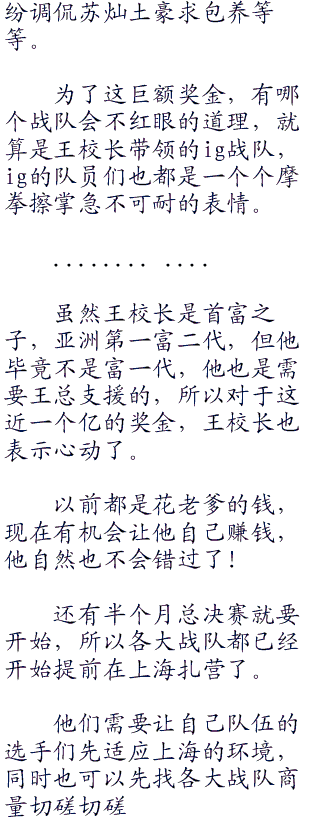 纷调侃苏灿土豪求包养等
等。
为了这巨额奖金，有哪
个战队会不红眼的道理，就
算是王校长带领的ig战队，
ig的队员们也都是一个个摩
拳擦掌急不可耐的表情。
........ ....
虽然王校长是首富之
子，亚洲第一富二代，但他
毕竟不是富一代，他也是需
要王总支援的，所以对于这
近一个亿的奖金，王校长也
表示心动了。
以前都是花老爹的钱，
现在有机会让他自己赚钱，
他自然也不会错过了！
还有半个月总决赛就要
开始，所以各大战队都已经
开始提前在上海扎营了。
他们需要让自己队伍的
选手们先适应上海的环境，
同时也可以先找各大战队商
量切磋切磋